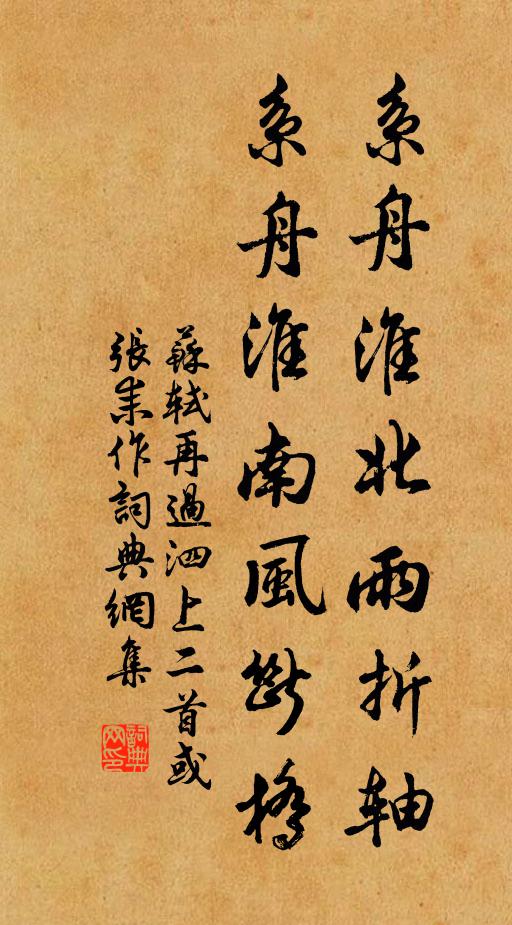 系舟淮北雨折軸
系舟淮南風斷橋
蘇軾再過泗上二首或
張耒作詞典網集
詞典網印